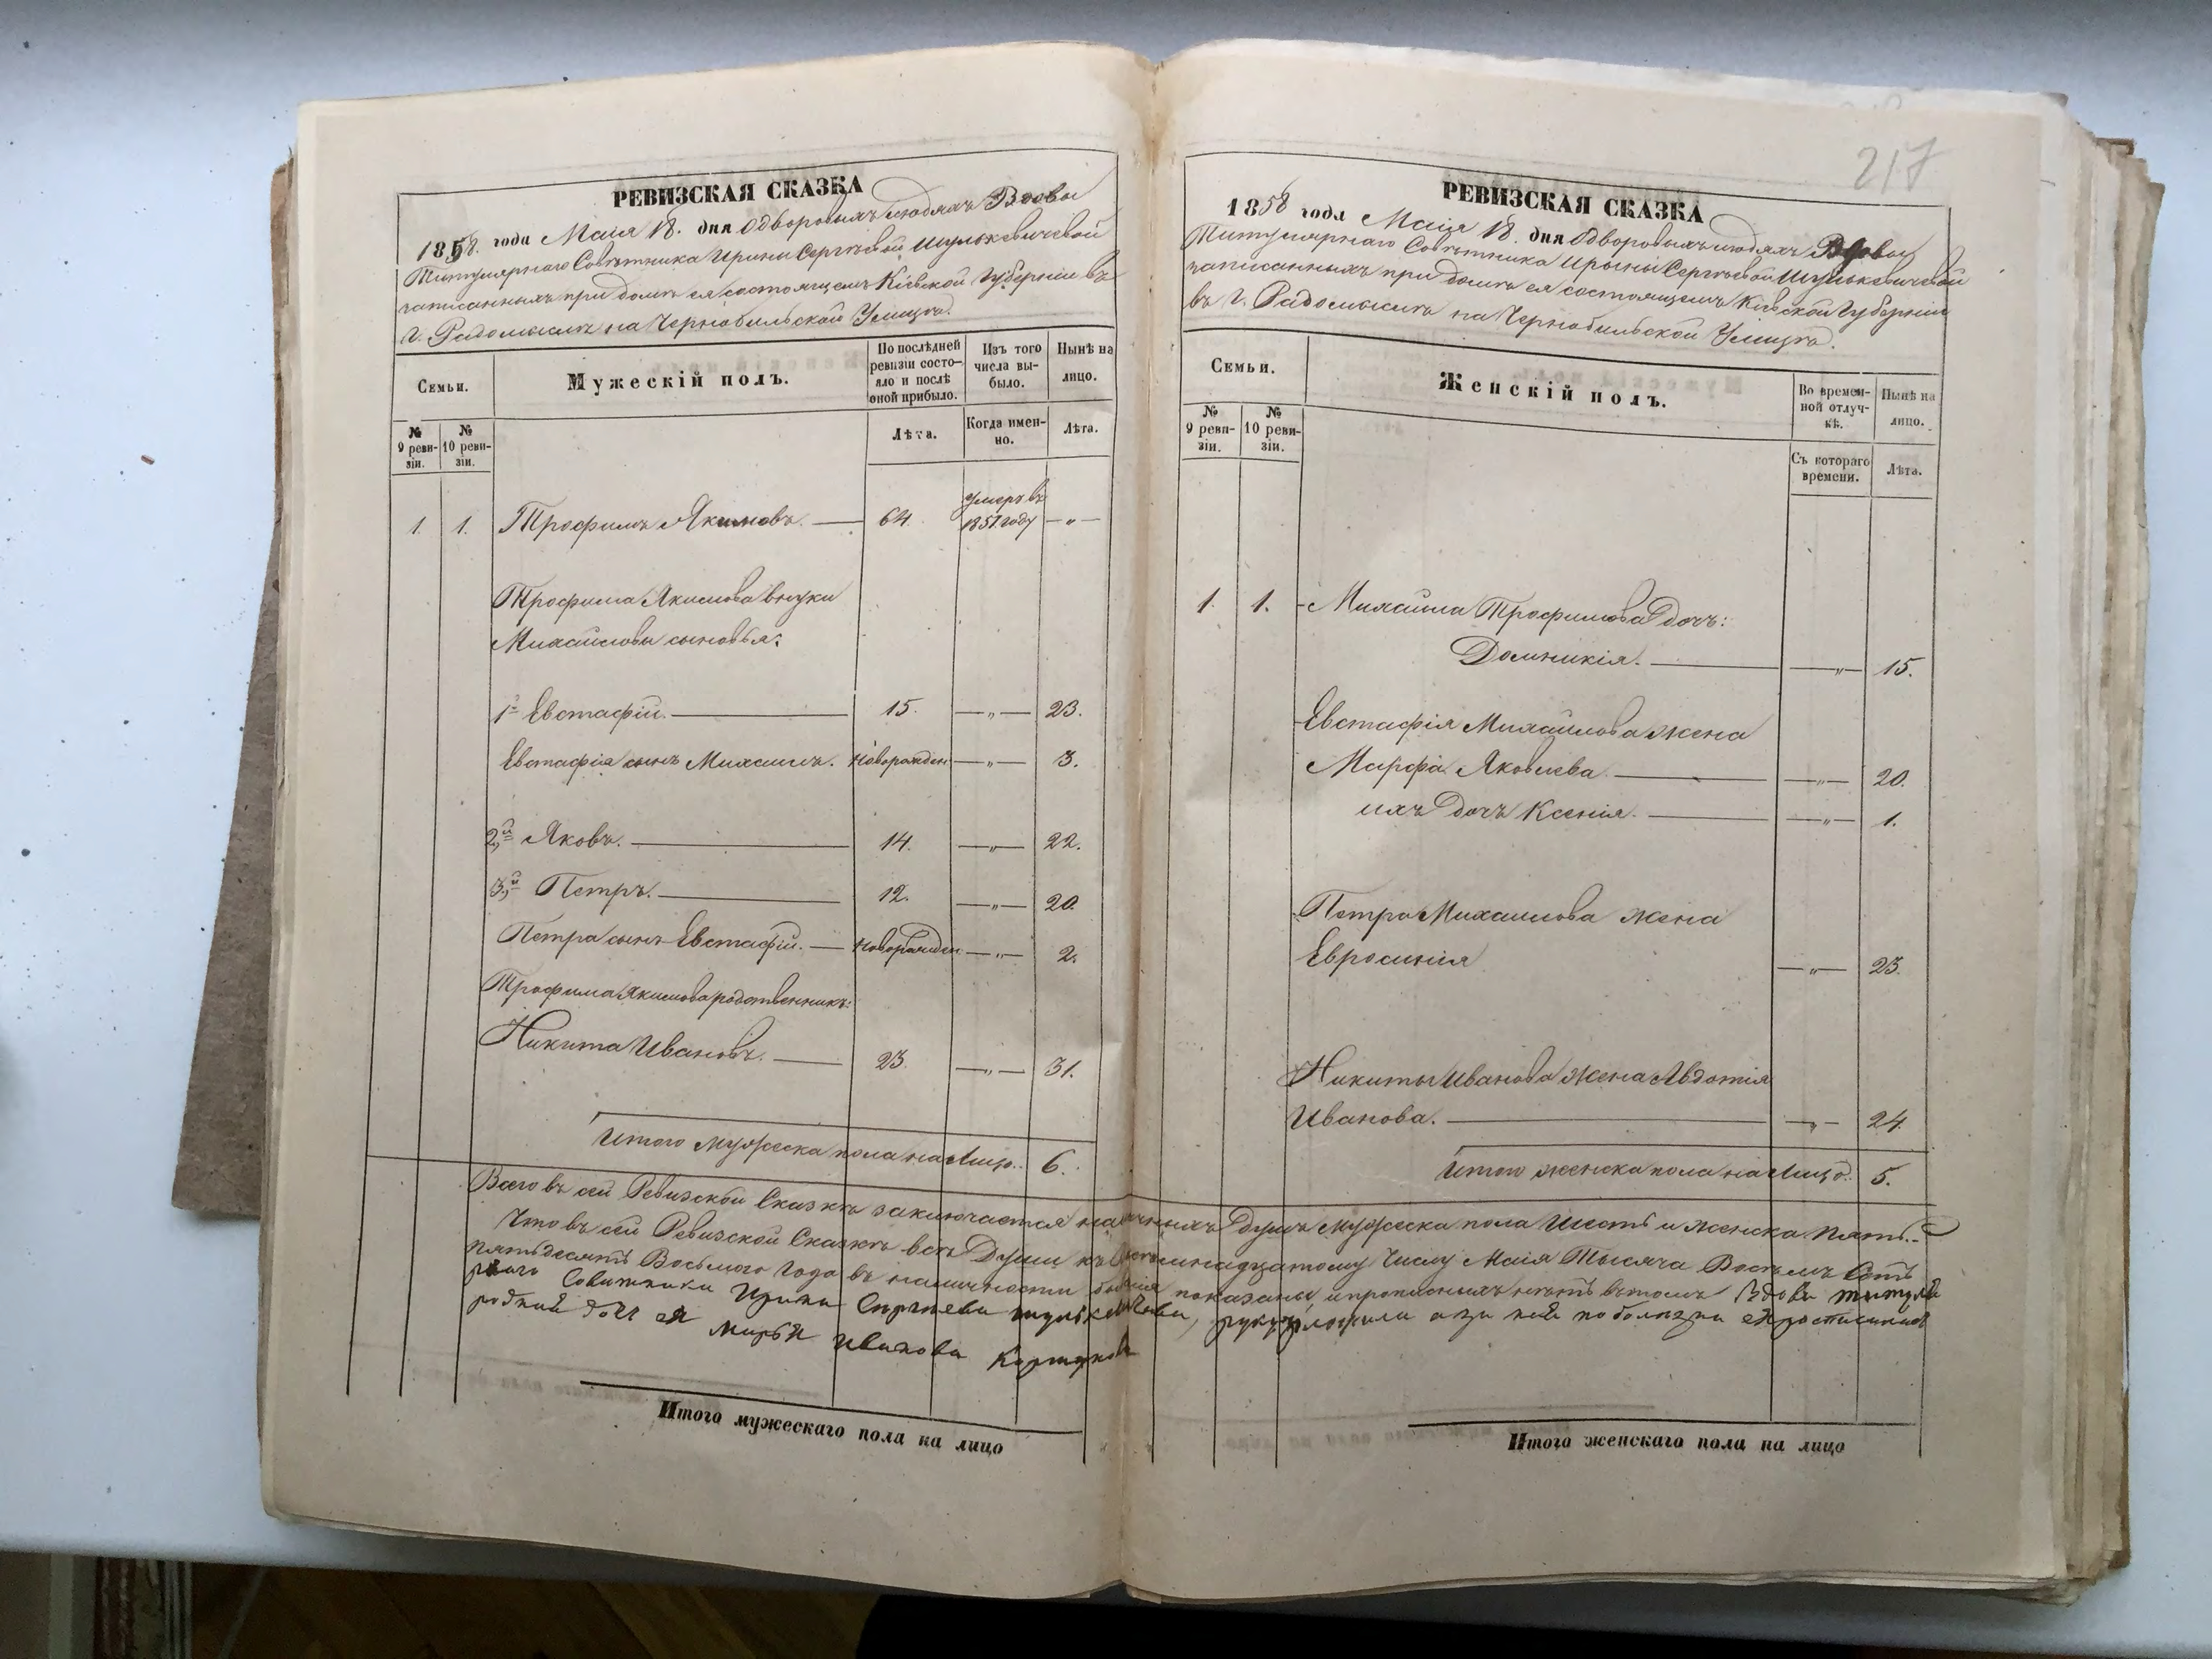 217
РЕВИЗСКАЯ СКАЗКА
1858. года Маия 18. дня О дворовыхъ людяхъ Вдовы
Титулярнаго Совѣтника Ирины Сергѣевой Шулькевичевой
записанныхъ при домѣ ея состоящемъ Кіевской Губерніи въ
г. Радомыслѣ на Чернобильской Улицѣ.
Семьи.
Мужескій полъ.
По послѣдней ревизіи состо-
яло и послѣ
оной прибыло.
Изъ того
числа вы-
было.
Нынѣ на
лицо.
№
9 реви-
зіи.
№
10 реви-
зіи.
Лѣта.
Когда имен-
но.
Лѣта.
1. 1. Трофимъ Якимовъ. — 64. Умеръ въ
1851 году —„—
Трофима Якимова внуки
Михайловы сыновья:
1й Евстафій. — 15. —„— 23.
Евстафія сынъ Михаилъ. Новорожден —„— 3.
2й Яковъ. — 14. —„— 22.
3й Петръ. — 12. —„— 20.
Петра сынъ Евстафій. — Новорожден —„— 2.
Трофима Якимова родственникъ:
Никита Ивановъ. — 23. —„— 31.
Итого мужеска пола на лицо. 6.
РЕВИЗСКАЯ СКАЗКА
1858 года Маия 18. дня О дворовыхъ людяхъ Вдовы
Титулярнаго Совѣтника Ирыны Сергѣевой Шулькевичевой
записанныхъ при домѣ ея состоящемъ Кіевской Губерніи
въ г. Радомыслѣ на Чернобильской Улицѣ.
Семьи.
Женскій полъ.
Во времен-
ной отлуч-
кѣ.
Нынѣ на
лицо.
№
9 реви-
зіи.
№
10 реви-
зіи.
Съ котораго
времени.
Лѣта.
1. 1. Михайла Трофимова дочь:
Домникія. — —„— 15.
Евстафія Михайлова жена
Марфа Яковлева. — —„— 20.
ихъ дочь Ксенія. — —„— 1.
Петра Михаилова жена
Евросинія —„— 23.
Никиты Иванова жена Авдотія
Иванова. — —„— 24.
Итого женска пола на лицо. 5.
Всего въ сей Ревизской Сказкѣ заключается наличныхъ душъ мужеска пола шесть и женска пять.
Что въ сей Ревизской Сказкѣ всѣ Души къ восемнадцатому числу Маія Тысяча Восемъ Сотъ
пятьдесятъ Восьмого года въ наличности бывшія показаны, и прописныхъ нѣтъ въ томъ Вдова титуля
рнаго Совитника Ирина Сергѣева Шулькевичева, руку приложила а за ней по болѣзни ея росписалась
родная дочь ея Марья Иванова
Итого мужескаго пола на лицо
Итого женскаго пола на лицо